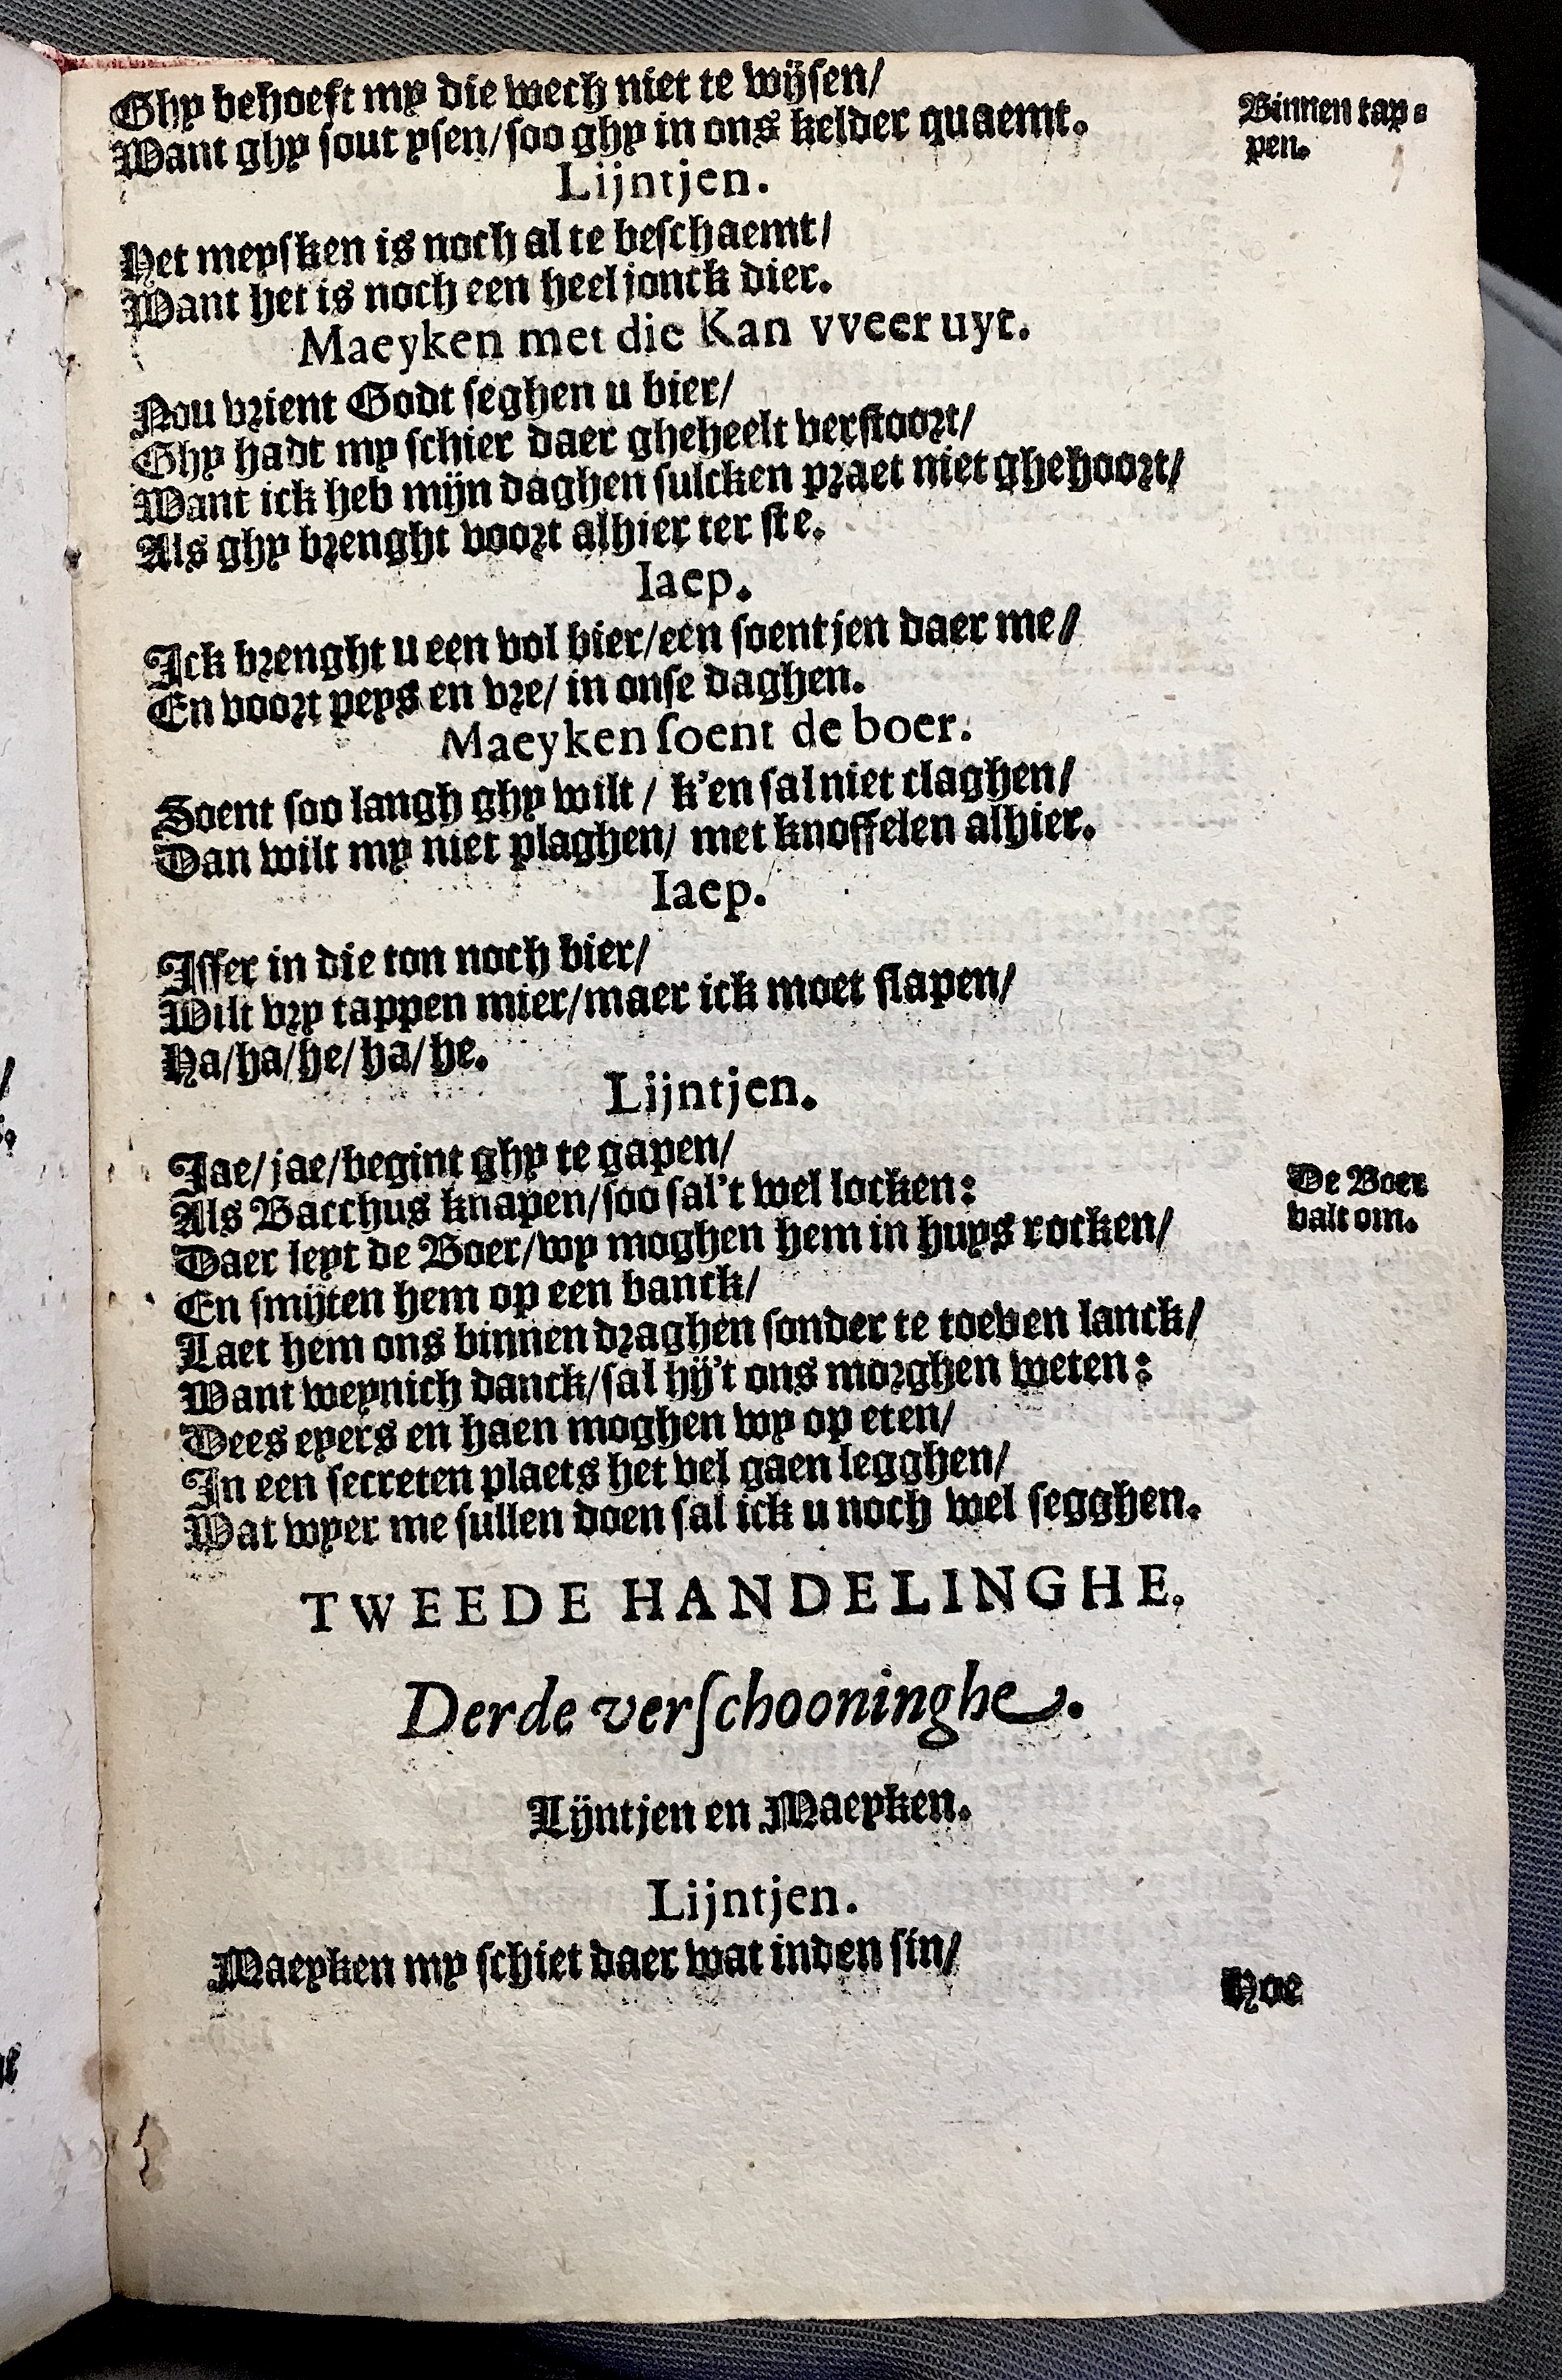 Ghy behoeft my die wech niet te wijsen/
Want ghy sout ysen/soo ghy in ons kelder quaemt.
Binnen tap-
pen.
Lijntjen.
Het meysken is noch al te beschaemt/
Want het is noch een heel jonck dier.
Maeyken met die Kan vveer uyt.
Nou vrient Godt seghen u bier/
Ghy hadt my schier daer gheheelt verstoort/
Want ick heb mijn daghen sulcken praet niet ghehoort/
Als ghy brenght voort alhier ter ste.
Iaep.
Ick brenght u een vol bier/een soentjen daer me/
En voort peys en vre/ in onse daghen.
Maeyken soent de boer.
Soent soo langh ghy wilt / k'en sal niet claghen/
Dan wilt my niet plaghen/ met knoffelen alhier.
Iaep.
Isser in die ton noch bier/
Wilt vry tappen mier/maer ick moet slapen/
Ha/ha/he/ha/he.
Lijntjen.
Jae/jae/begint ghy te gapen/
Als Bacchus knapen/soo sal't wel locken:
De Boer
valt om.
Daer leyt de Boer/wy moghen hem in huys rocken/
En smijten hem op een banck/
Laet hem ons binnen draghen sonder te toeven lanck/
Want weynich danck/sal hy't ons morghen weten:
Dees eyers en haen moghen wy op eten/
In een secreten plaets het vel gaen legghen/
Wat wyer me sullen doen sal ick u noch wel segghen.
TWEEDE HANDELINGHE.
Derde verschooninghe.
Lijntjen en Maeyken.
Lijntjen.
Maeyken my schiet daer wat inden sin/
Hoe